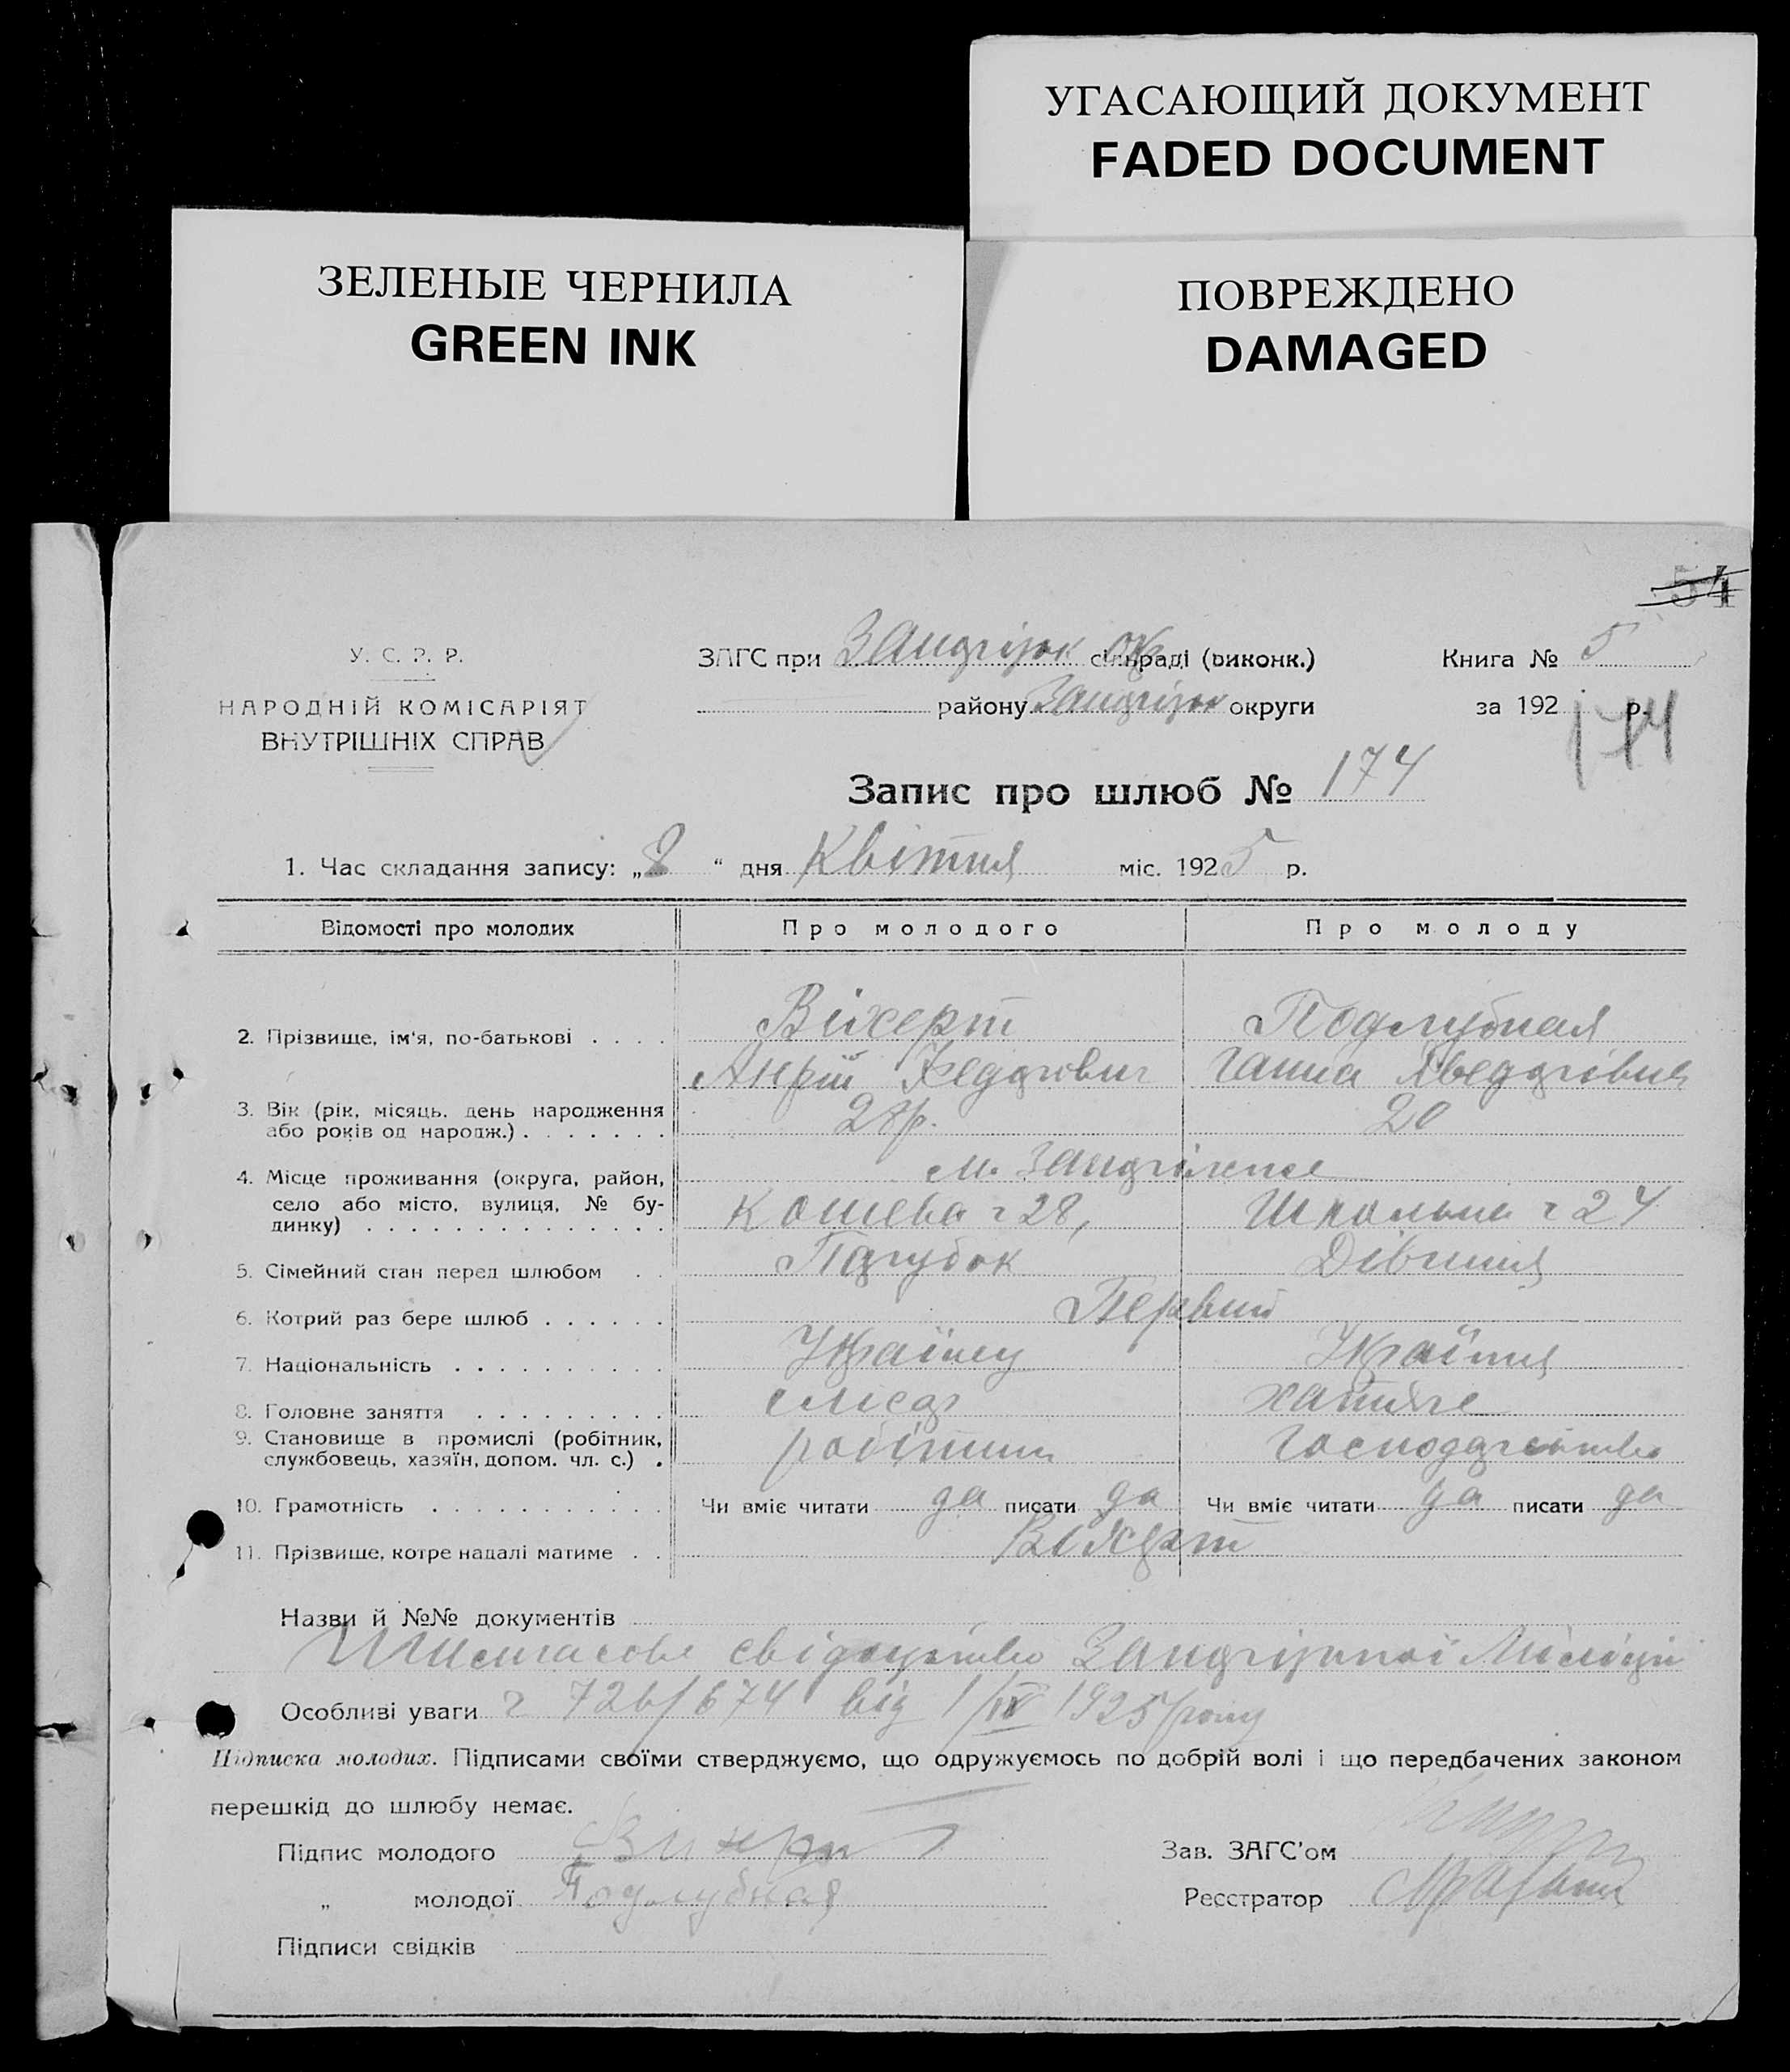 УГАСАЮЩИЙ ДОКУМЕНТ
FADED DOCUMENT
ЗЕЛЕНЫЕ ЧЕРНИЛА
GREEN INK
ПОВРЕЖДЕНО
DAMAGED
54
У. С. Р. Р.
НАРОДНІЙ КОМІСАРІЯТ
ВНУТРІШНІХ СПРАВ
ЗАГС при Запоріж окр сільраді (виконк.)
району Запоріж округи
Книга № 5
за 192 р.
174
Запис про шлюб № 174
1. Час складання запису: „8“ дня Квітня міс. 1925 р.
Відомості про молодих Про молодого Про молоду
2. Прізвище, ім'я, по-батькові . . . . Віхерт Подлубная
Ганна
3. Вік (рік, місяць, день народження 28р. 20
або років од народж.) . . . . . . .
4. Місце проживання (округа, район, м. Запоріжже
село або місто, вулиця, № бу- Кошева ч 28, Школьна ч 24
динку) . . . . . . . . . . . . . .
5. Сімейний стан перед шлюбом . . Парубок Дівчина
6. Котрий раз бере шлюб . . . . . . Первий
7. Національність . . . . . . . . . . Україн
8. Головне заняття . . . . . . . . . слюсар хатнє
9. Становище в промислі (робітник, робітник господарство
службовець, хазяїн, допом. чл. с.) .
10. Грамотність . . . . . . . . . . . Чи вміє читати да писати да Чи вміє читати да писати да
11. Прізвище, котре надалі матиме . . Віхерт
Назви й №№ документів
свідоцтво Запоріжної Міліції
Особливі уваги ч 726/674 від 1/IV 1925 року
Підписка молодих. Підписами своїми стверджуємо, що одружуємось по добрій волі і що передбачених законом
перешкід до шлюбу немає.
Підпис молодого Вихерт
„ молодої Подлубная
Підписи свідків
Зав. ЗАГС'ом
Реєстратор